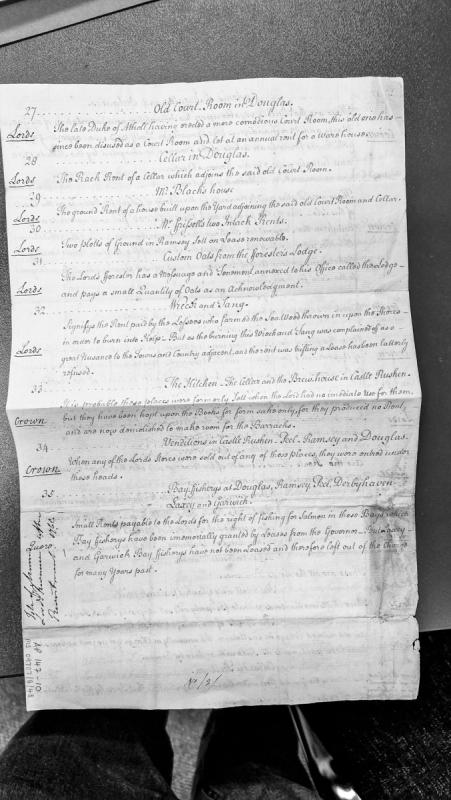 27 Old Court Room in Douglas.
Lords The late Duke of Atholl having erected a more comodious Court Room, this old one has
since been disused as a Court Room and let at an annual rent for a Warehouse.
28 Cellar in Douglas.
Lords The Rack Rent of a Cellar which adjoins the said old Court Room.
29 Mr Blacks house
Lords The ground Rent of a house built upon the Yard adjoining the said old Court Room and Cellar.
30 Wm Frissells two Inlack Rents.
Lords Two plotts of Ground in Ramsey Sett on Lease renewable.
31 Custom Oats from the fforesters Lodge.
The Lords fforester has a Messuage and Tenement annexed to his Office called the Lodge
Lords and pays a small Quantity of Oats as an Acknowledgment.
32 Wreck and Tang.
Signifys the Rent paid by the Lessees who farmed the Sea Weed thrown in upon the Shores
in order to burn into Kelp - But as the burning this Wreck and Tang was complained of as a
Lords great Nusance to the Towns and Country adjacent, and the rent was trifling a Lease has been latterly
refused.
33 The Kitchen - The Cellar and the Brewhouse in Castle Rushen.
It is probable these places were formerly Sett when the Lord had no imediate Use for them,
Crown but they have been kept upon the Books for form sake only, for they produced no Rent,
and are now demolished to make room for the Barracks.
34 Venditions in Castle Rushen - Peel - Ramsey and Douglas.
Crown When any of the Lords Stores were sold out of any of those places, they were entred under
these heads.
35 Bay ffisherys at Douglas, Ramsey Peel, Derbyhaven
Laxey and Garwick.
Small Rents payable to the Lords for the right of fishing for Salmon in these Bays which
Bay ffisherys have been immemorially granted by Leases from the Governor - But Laxey
and Garwick Bay ffisherys have not been Leased and therefore left out of the Charge
for many Years past.
Isle of Man
AP 147-10